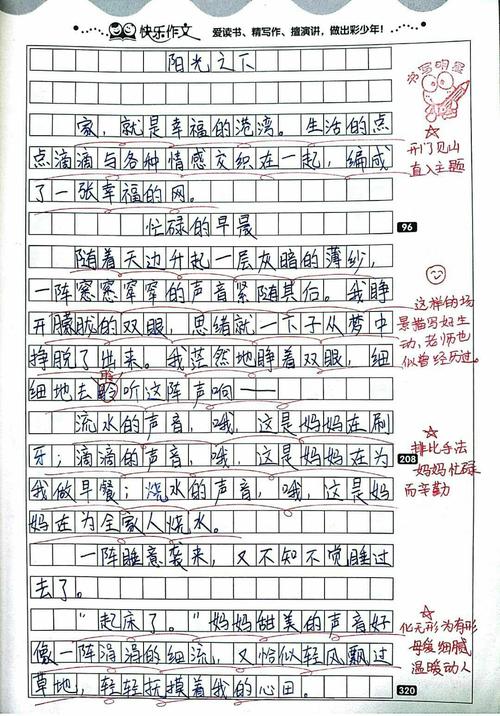 快乐作文 爱读书、精写作、擅演讲，做出彩少年！
阳光之下
书写明星
家，就是幸福的港湾。生活的点
点滴滴与各种情感交织在一起，编成
了一张幸福的网。
☆
开门见山
直入主题
忙碌的早晨
96
随着天边升起一层灰暗的薄纱，
一阵窸窸窣窣的声音紧随其后。我睁
开朦胧的双眼，思绪就一下子从梦中
挣脱了出来。我茫然地睁着双眼，细
细地去聆听这阵声响——
聆
这样的场
景描写好生
动，老师也
似曾经历过。
流水的声音，哦，这是妈妈在刷
牙；滴滴的声音，哦，这是妈妈在为
我做早餐；烧水的声音，哦，这是妈
妈在为全家人烧水。
208
☆
排比手法
妈妈忙碌
而辛勤
一阵睡意袭来，又不知不觉睡过
去了。
“起床了。”妈妈甜美的声音好
像一阵涓涓的细流，又恰似轻风飘过
草地，轻轻抚摸着我的心田。
☆
化无形为有形
母爱细腻
温暖动人
320